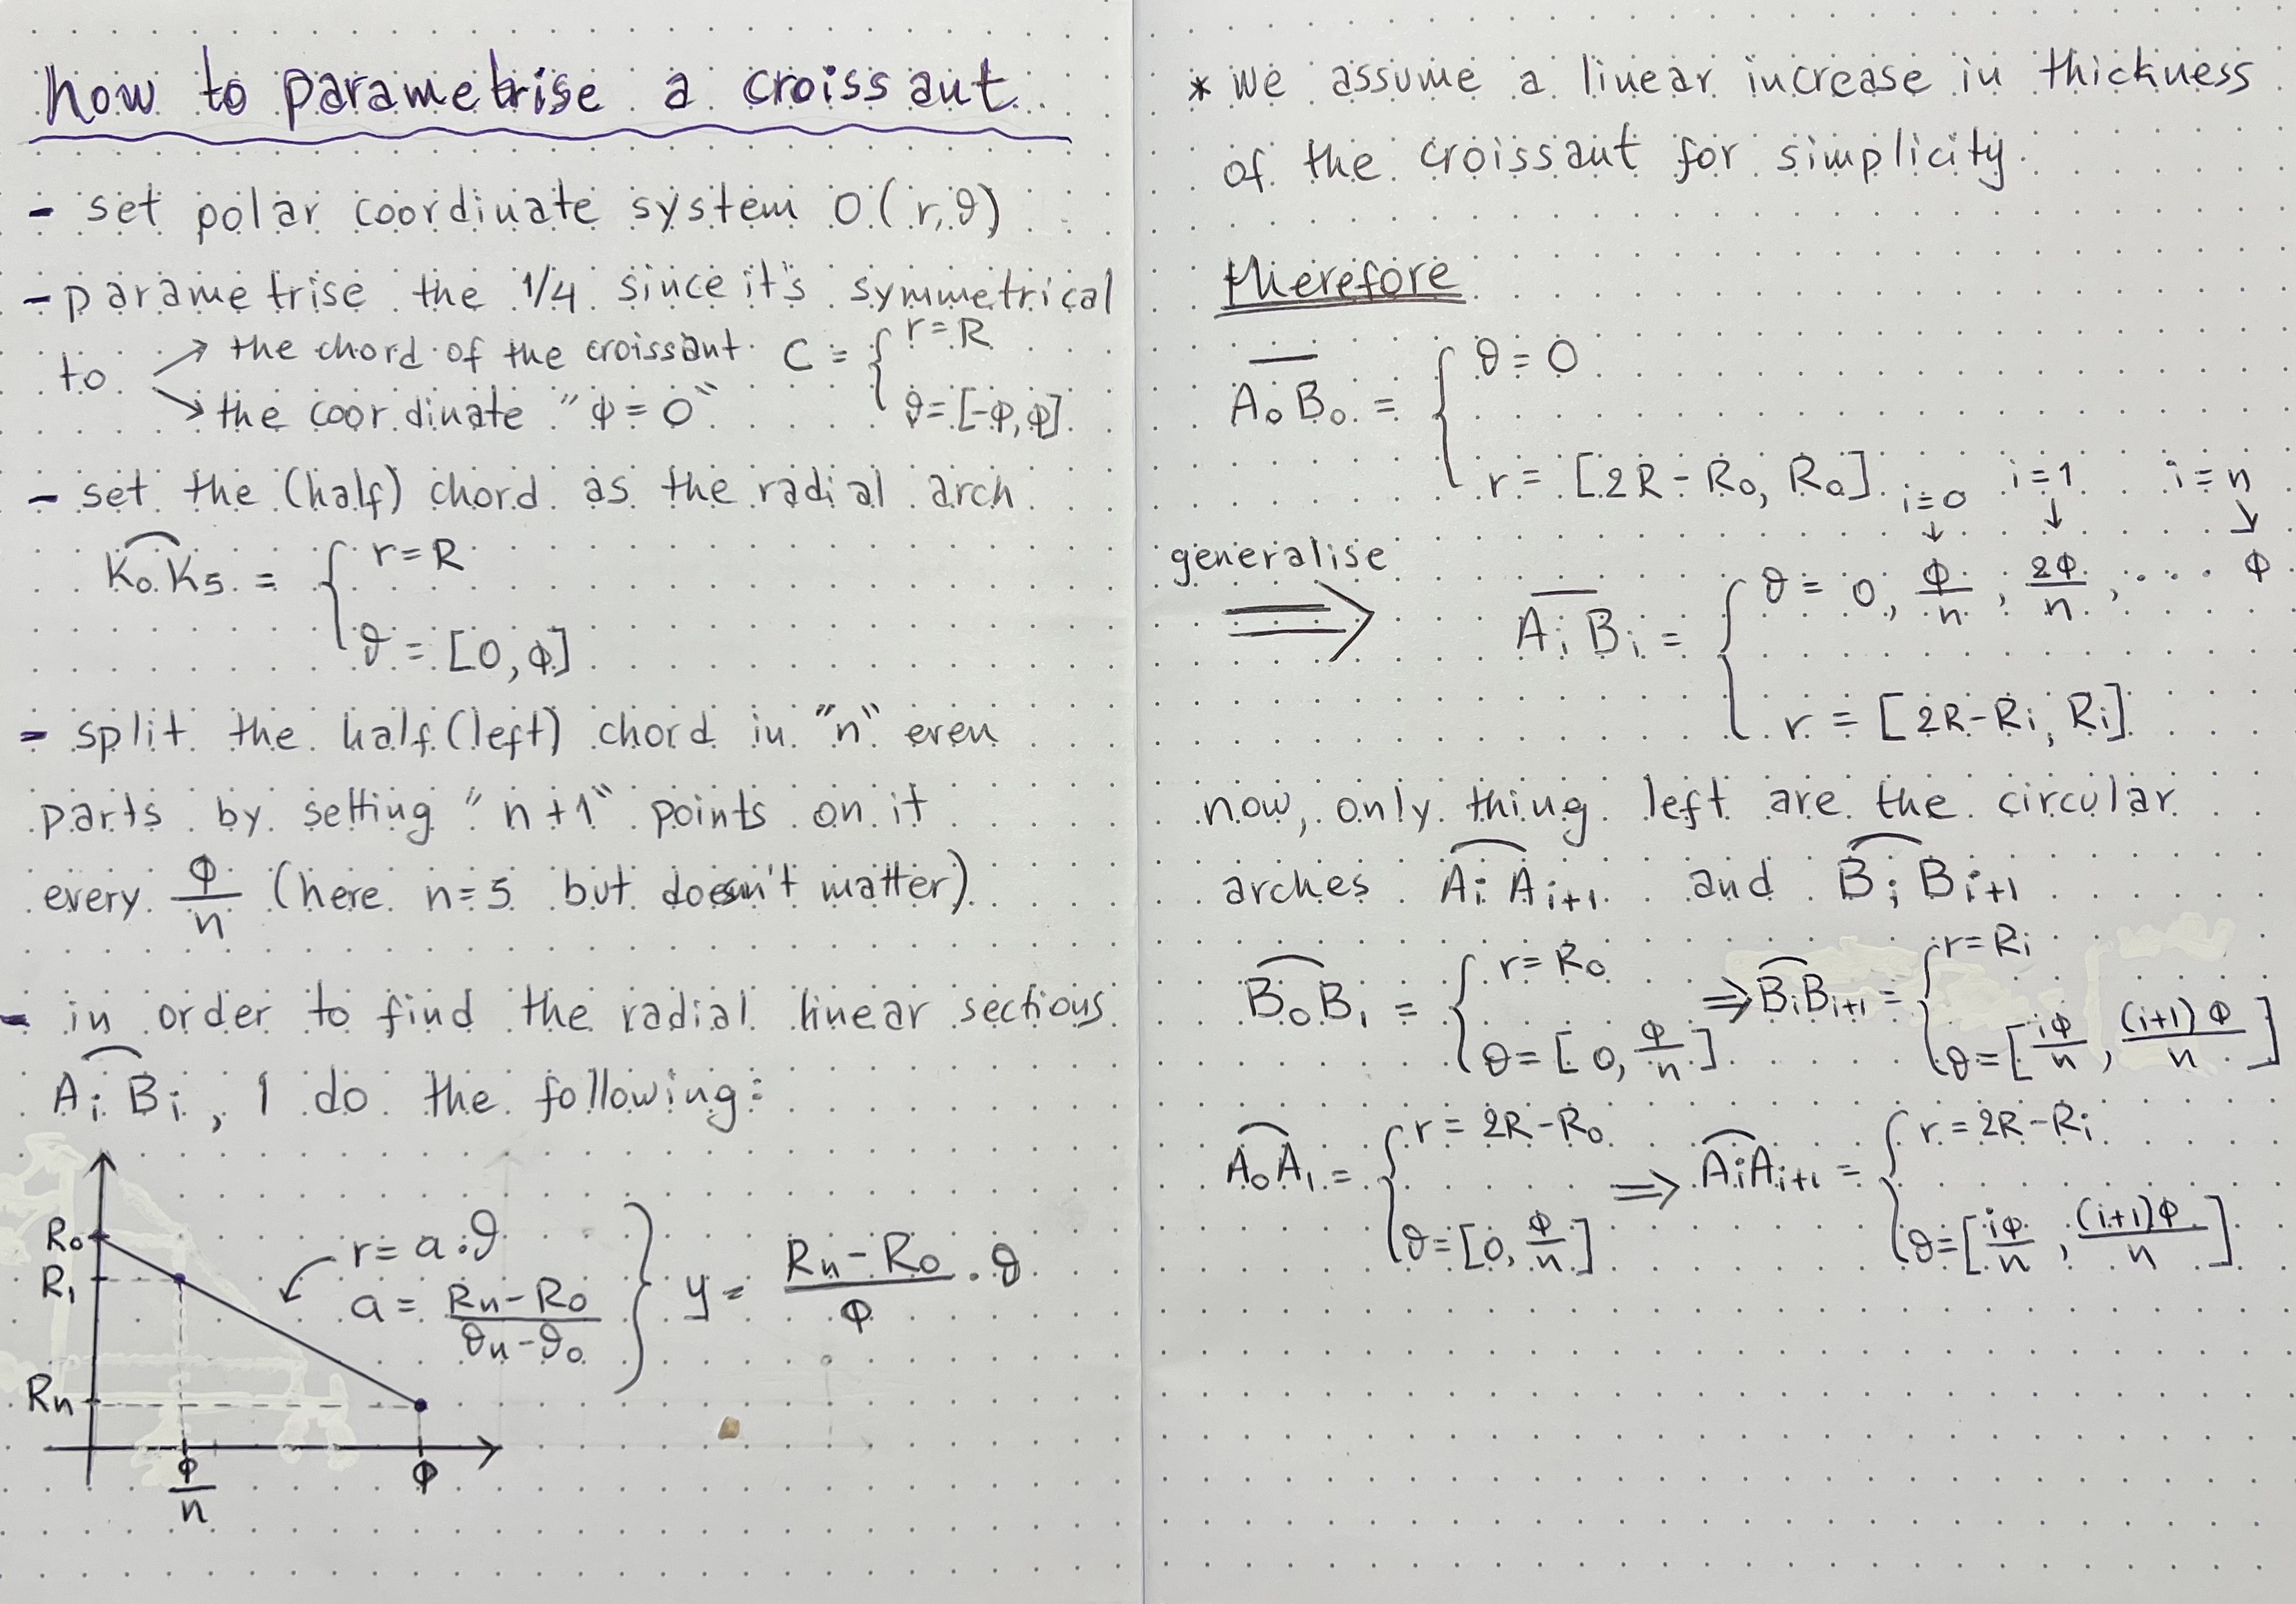 how to parametrise a croissant
- set polar coordinate system O(r,θ)
- parametrise the 1/4 since it's symmetrical
to → the chord of the croissant C = { r = R
→ the coordinate "φ = 0" θ = [-φ, φ]
- set the (half) chord as the radial arch
K₀K₅ = { r = R
θ = [0, φ]
- split the half (left) chord in "n" even
parts by setting "n+1" points on it
every φ/n (here n=5 but doesn't matter)
- in order to find the radial linear sections
AᵢBᵢ, I do the following:
R₀
R₁
Rn
φ/n
φ
r = a·θ
a = (Rn - R₀)/(θn - θ₀) } y = (Rn - R₀)/φ · θ
* we assume a linear increase in thickness
of the croissant for simplicity.
therefore
A₀B₀ = { θ = 0
r = [2R - R₀, R₀]
i=0 i=1 i=n
generalise ⟹ AᵢBᵢ = { θ = 0, φ/n, 2φ/n, ... φ
r = [2R - Rᵢ, Rᵢ]
now, only thing left are the circular
arches AᵢAᵢ₊₁ and BᵢBᵢ₊₁
B₀B₁ = { r = R₀ ⇒ BᵢBᵢ₊₁ = { r = Rᵢ
θ = [0, φ/n] θ = [iφ/n, (i+1)φ/n]
A₀A₁ = { r = 2R - R₀ ⇒ AᵢAᵢ₊₁ = { r = 2R - Rᵢ
θ = [0, φ/n] θ = [iφ/n, (i+1)φ/n]